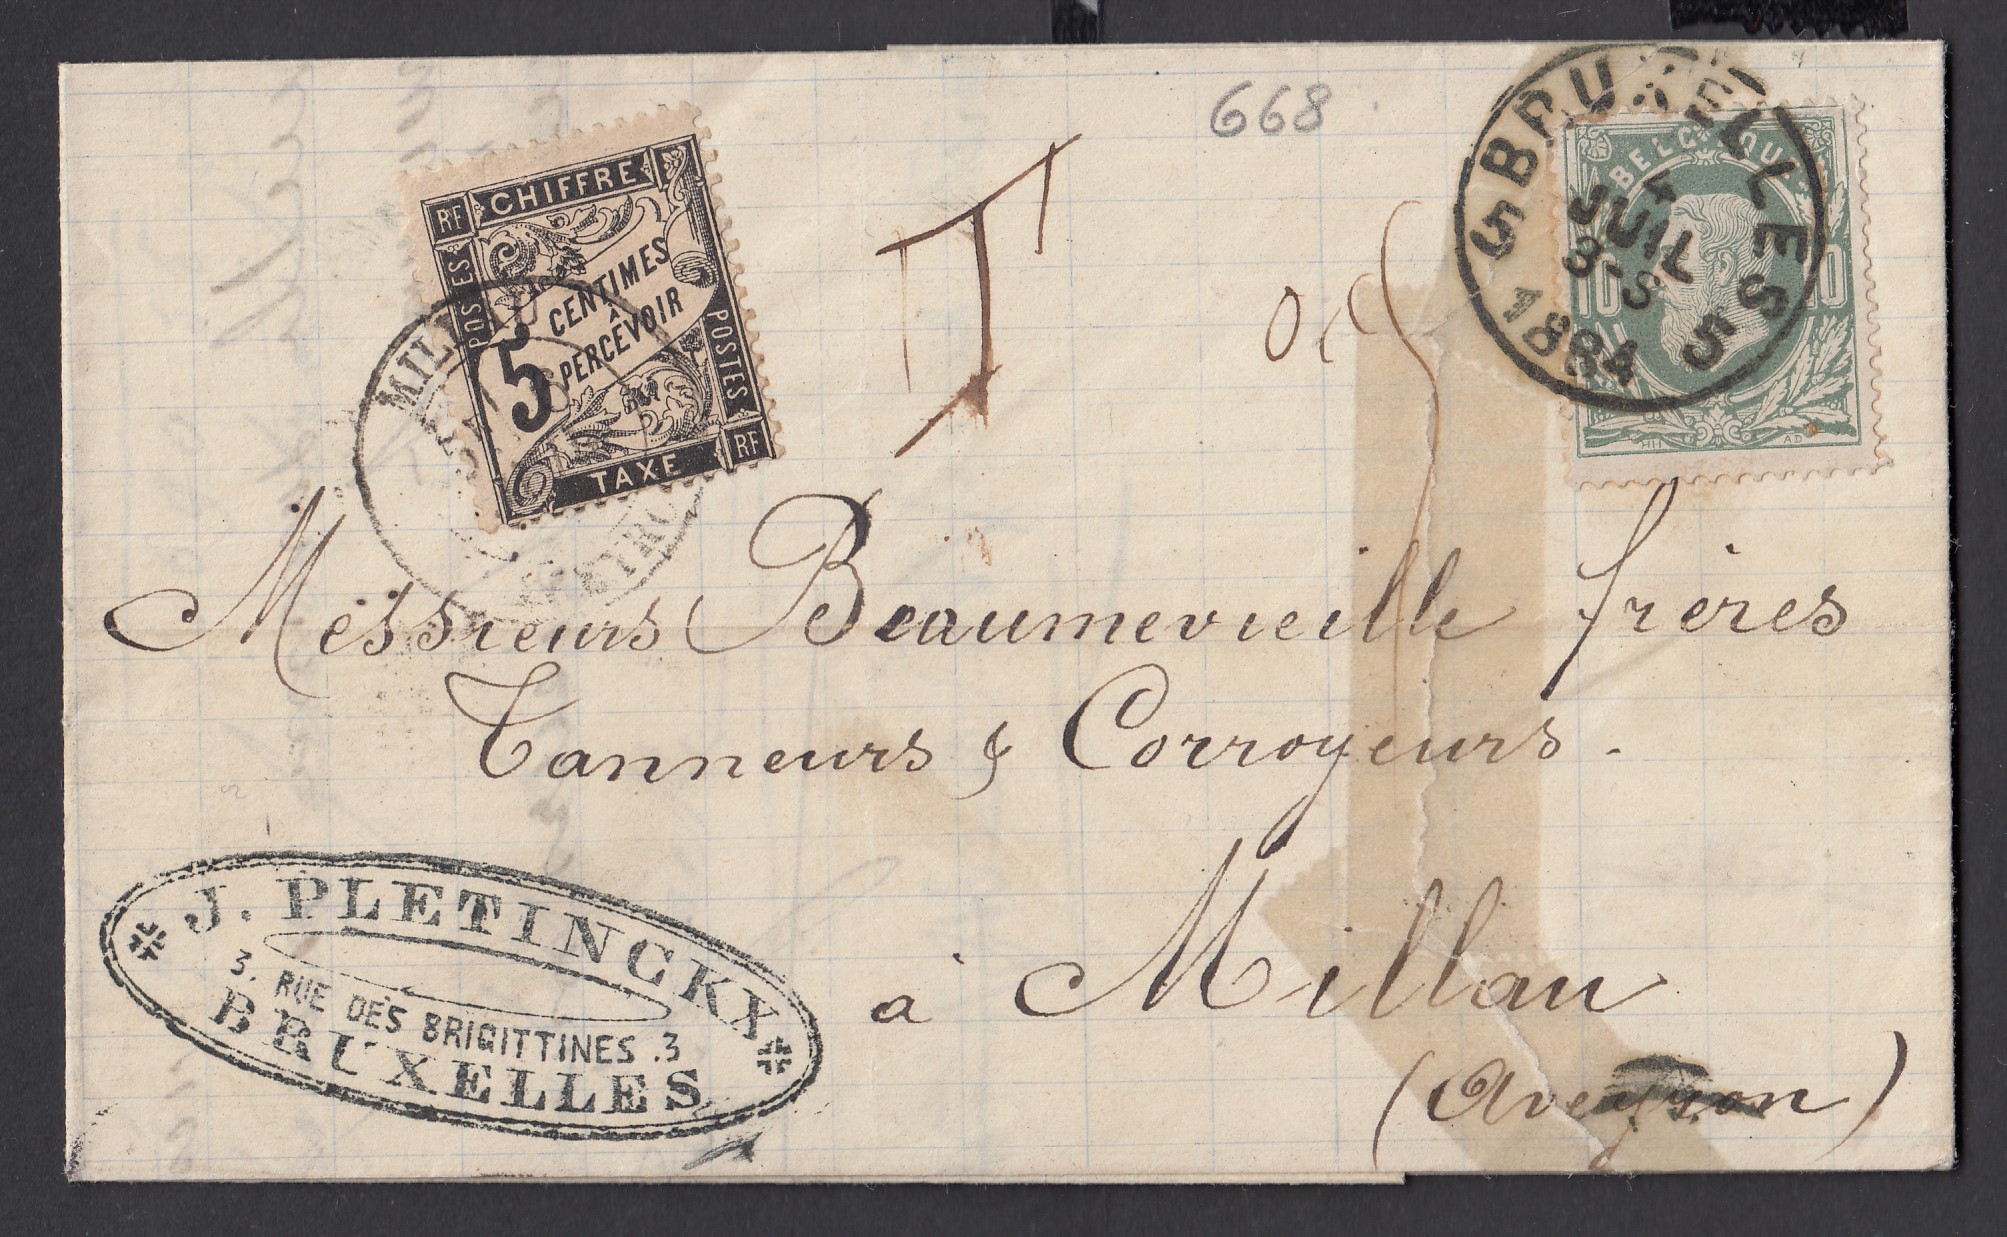 668
5 BRUXELLES 5
4
JUIL
3-S
1884
BELGIQUE
10 10
HH AD
RF CHIFFRE
POSTES
5 CENTIMES
À
PERCEVOIR
POSTES
TAXE RF
T
Messieurs Beaumevieille frères
Tanneurs & Corroyeurs.
à Millau
(Aveyron)
J. PLETINCKX
3. RUE DES BRIGITTINES .3
BRUXELLES